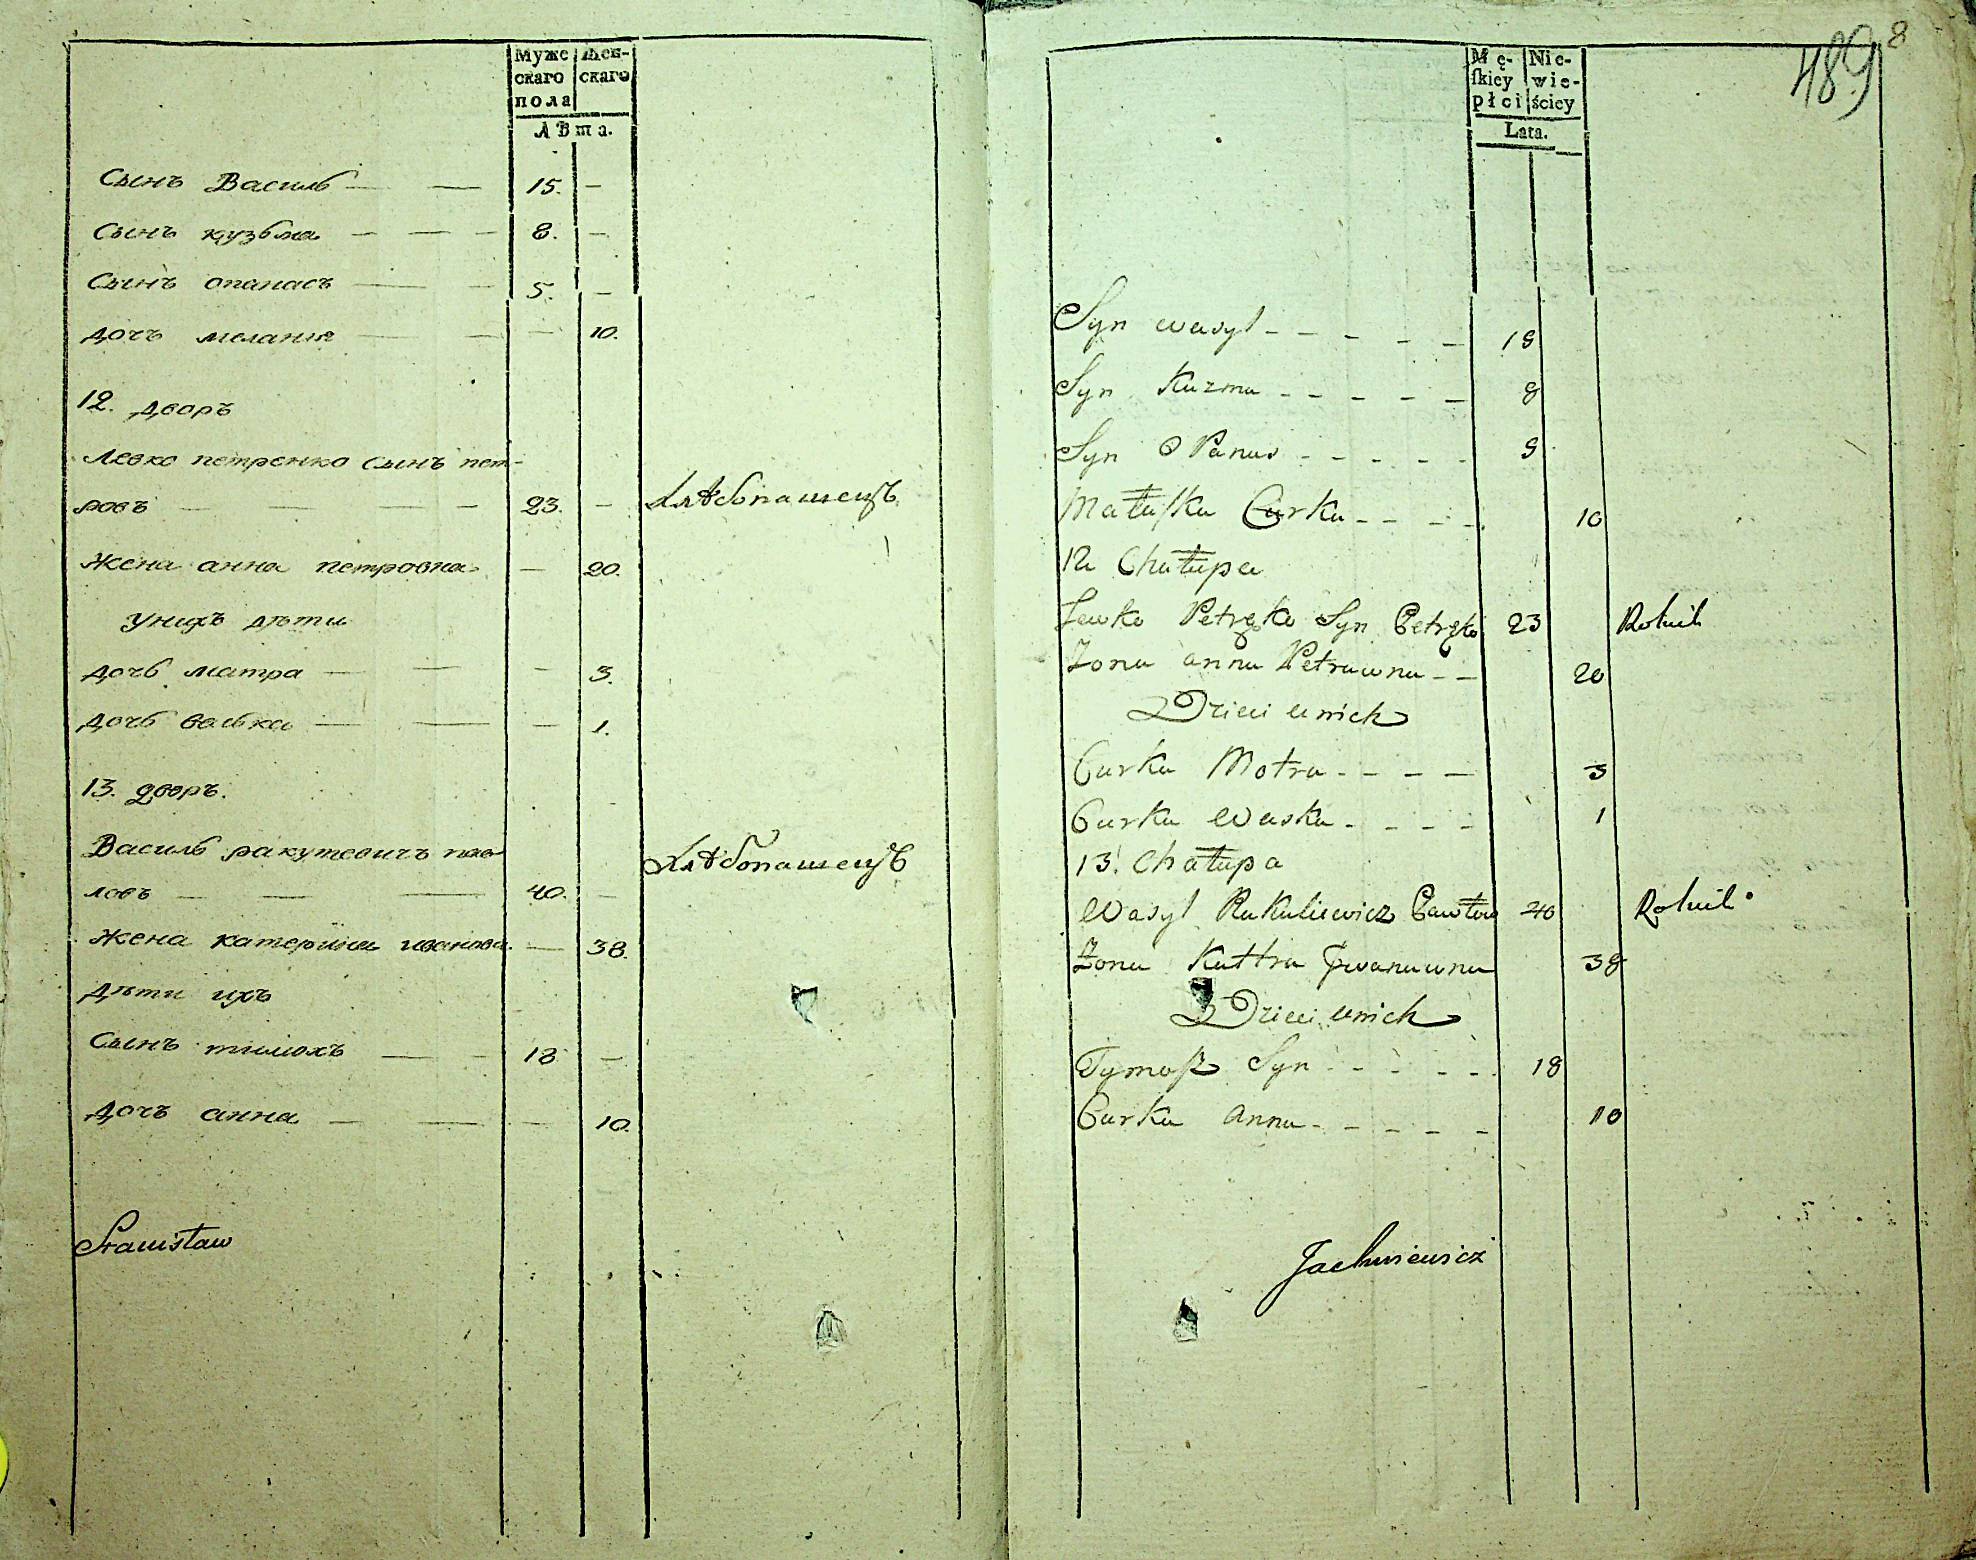 Муже
скаго
пола
Жен-
скаго
Лѣта.
Сынъ Василь 15. —
Сынъ кузьма 8. —
Сынъ опанасъ 5. —
дочъ мелания — 10.
12. дворъ
Левко петренко сынъ пет-
ровъ 23. — Хлѣбопашецъ
Жена анна петровна — 20.
у нихъ дѣти
дочь матра — 3.
дочь васька — 1.
13. дворъ.
Василь ракутевичъ пав-
ловъ 40. — Хлѣбопашецъ
Жена катерина иванова — 38.
Дѣти ихъ
Сынъ тимохъ 18 —
дочъ анна — 10.
Stanisław
489 8
Mę-
skiey
płci
Nie-
wie-
ściey
Lata.
Syn wasyl 18
Syn Kuzma 8
Syn OPanas 9
Curka 10
12 Chałupa
Lewko Petręko Syn Petręko 23 Rolnik
Zona anna Petrawna 20
Dzieci unich
Curka Motra 3
Curka Waska 1
13. Chałupa
Wasyl Rakuliewicz Pawłow 40 Rolnik
Zona Kattra Jwanawna 38
Dzieci unich
Tymosz Syn 18
Curka anna 10
Jachniewicz